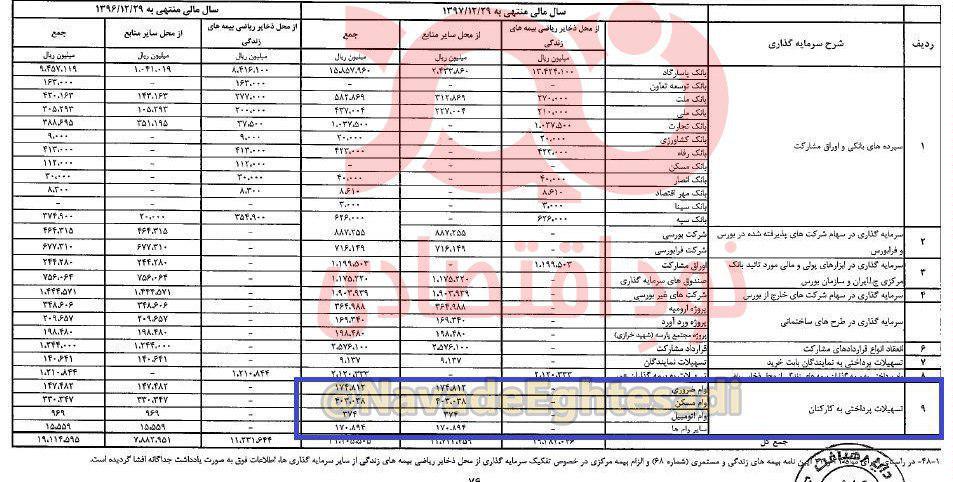 سال مالی منتهی به ۱۳۹۷/۱۲/۲۹ سال مالی منتهی به ۱۳۹۶/۱۲/۲۹
ردیف شرح سرمایه گذاری از محل ذخایر ریاضی بیمه های زندگی از محل سایر منابع جمع از محل ذخایر ریاضی بیمه های زندگی از محل سایر منابع جمع
میلیون ریال میلیون ریال میلیون ریال میلیون ریال میلیون ریال میلیون ریال
۱ سپرده های بانکی و اوراق مشارکت
بانک پاسارگاد ۱۳.۴۲۴.۱۰۰ ۲.۴۳۳.۸۶۰ ۱۵.۸۵۷.۹۶۰ ۸.۴۱۶.۱۰۰ ۱.۰۴۱.۰۱۹ ۹.۴۵۷.۱۱۹
بانک توسعه تعاون - - - ۱۶۳.۰۰۰ - ۱۶۳.۰۰۰
بانک ملت ۲۷۰.۰۰۰ ۳۱۲.۸۶۹ ۵۸۲.۸۶۹ ۲۷۷.۰۰۰ ۱۴۳.۱۶۳ ۴۲۰.۱۶۳
بانک ملی ۲۱۰.۰۰۰ ۲۲۷.۰۰۴ ۴۳۷.۰۰۴ ۲۰۰.۰۰۰ ۱۰۵.۲۹۳ ۳۰۵.۲۹۳
بانک تجارت ۱.۰۳۷.۵۰۰ - ۱.۰۳۷.۵۰۰ ۳۷.۵۰۰ ۳۵۱.۱۹۵ ۳۸۸.۶۹۵
بانک کشاورزی ۲۰.۰۰۰ - ۲۰.۰۰۰ ۹.۰۰۰ - ۹.۰۰۰
بانک رفاه ۴۲۳.۰۰۰ - ۴۲۳.۰۰۰ ۴۱۳.۰۰۰ - ۴۱۳.۰۰۰
بانک مسکن - - - ۱۱۲.۰۰۰ - ۱۱۲.۰۰۰
بانک انصار ۴۰.۰۰۰ - ۴۰.۰۰۰ ۳۰.۰۰۰ - ۳۰.۰۰۰
بانک مهر اقتصاد ۸.۶۱۰ - ۸.۶۱۰ ۸.۳۰۰ - ۸.۳۰۰
بانک سینا ۳.۰۰۰ - ۳.۰۰۰ - - -
بانک سپه ۶۲۶.۰۰۰ - ۶۲۶.۰۰۰ ۳۵۴.۹۰۰ ۲۰.۰۰۰ ۳۷۴.۹۰۰
۲ سرمایه گذاری در سهام شرکت های پذیرفته شده در بورس و فرابورس
شرکت بورسی - ۸۸۷.۲۵۵ ۸۸۷.۲۵۵ - ۴۶۴.۳۱۵ ۴۶۴.۳۱۵
شرکت فرابورسی - ۷۱۶.۱۴۹ ۷۱۶.۱۴۹ - ۶۷۷.۳۱۰ ۶۷۷.۳۱۰
۳ سرمایه گذاری در ابزارهای پولی و مالی مورد تائید بانک مرکزی ج.ا.ایران و سازمان بورس
اوراق مشارکت ۱.۱۹۹.۵۰۳ - ۱.۱۹۹.۵۰۳ - ۲۴۴.۲۸۰ ۲۴۴.۲۸۰
صندوق های سرمایه گذاری - ۱.۱۷۵.۲۲۰ ۱.۱۷۵.۲۲۰ - ۷۵۶.۰۶۴ ۷۵۶.۰۶۴
۴ سرمایه گذاری در سهام شرکت های خارج از بورس شرکت های غیر بورسی - ۱.۹۰۳.۹۳۹ ۱.۹۰۳.۹۳۹ - ۱.۴۴۴.۵۷۱ ۱.۴۴۴.۵۷۱
سرمایه گذاری در طرح های ساختمانی
پروژه ارومیه - ۳۶۴.۹۸۸ ۳۶۴.۹۸۸ - ۳۴۸.۶۰۸ ۳۴۸.۶۰۸
پروژه ورد آورد - ۱۶۹.۳۴۰ ۱۶۹.۳۴۰ - ۲۰۹.۶۵۷ ۲۰۹.۶۵۷
پروژه مجتمع پارسه (شهید خرازی) - ۱۹۸.۴۸۰ ۱۹۸.۴۸۰ - ۱۹۸.۴۸۰ ۱۹۸.۴۸۰
۶ انعقاد انواع قراردادهای مشارکت قرارداد مشارکت - ۲.۵۷۶.۱۰۰ ۲.۵۷۶.۱۰۰ - ۱.۲۴۴.۰۰۰ ۱.۲۴۴.۰۰۰
۷ تسهیلات پرداختی به نمایندگان بابت خرید تسهیلات نمایندگان - ۹.۱۳۷ ۹.۱۳۷ - ۱۴۰.۶۴۱ ۱۴۰.۶۴۱
۲.۱۲۰.۲۳۳ - ۲.۱۲۰.۲۳۳ ۱.۲۱۰.۸۴۴ - ۱.۲۱۰.۸۴۴
۹ تسهیلات پرداختی به کارکنان
وام ضروری - ۱۷۴.۸۱۲ ۱۷۴.۸۱۲ - ۱۴۷.۴۸۲ ۱۴۷.۴۸۲
وام مسکن - ۴۰۳.۰۳۸ ۴۰۳.۰۳۸ - ۳۳۰.۳۴۷ ۳۳۰.۳۴۷
وام اتومبیل - ۳۷۴ ۳۷۴ - ۹۶۹ ۹۶۹
سایر وام ها - ۱۷۰.۸۹۴ ۱۷۰.۸۹۴ - ۱۵.۵۵۹ ۱۵.۵۵۹
جمع کل ۱۱.۲۳۱.۶۴۴ ۷.۸۸۲.۹۵۱ ۱۹.۱۱۴.۵۹۵
@NavadeEghtesadi
نود اقتصادی
۴۸-۱- در راستای آیین نامه بیمه های زندگی و مستمری (شماره ۶۸) و الزام بیمه مرکزی در خصوص تفکیک سرمایه گذاری از محل ذخایر ریاضی بیمه های زندگی از سایر سرمایه گذاری ها، اطلاعات فوق به صورت یادداشت جداگانه افشا گردیده است.
۷۹